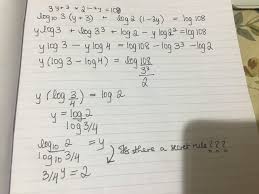 3^{y+3} × 2^{1-2y} = 108
log₁₀ 3 (y+3) + log 2 (1-2y) = log108
y log3 + log3³ + log2 - y log2² = log108
y log3 - y log4 = log108 - log3³ - log2
y (log3 - log4) = log 108/3³/2
y (log 3/4) = log2
y = log2/log3/4
log₁₀ 2/log₁₀ 3/4 = y
3/4^y = 2
Is there a secret rule???